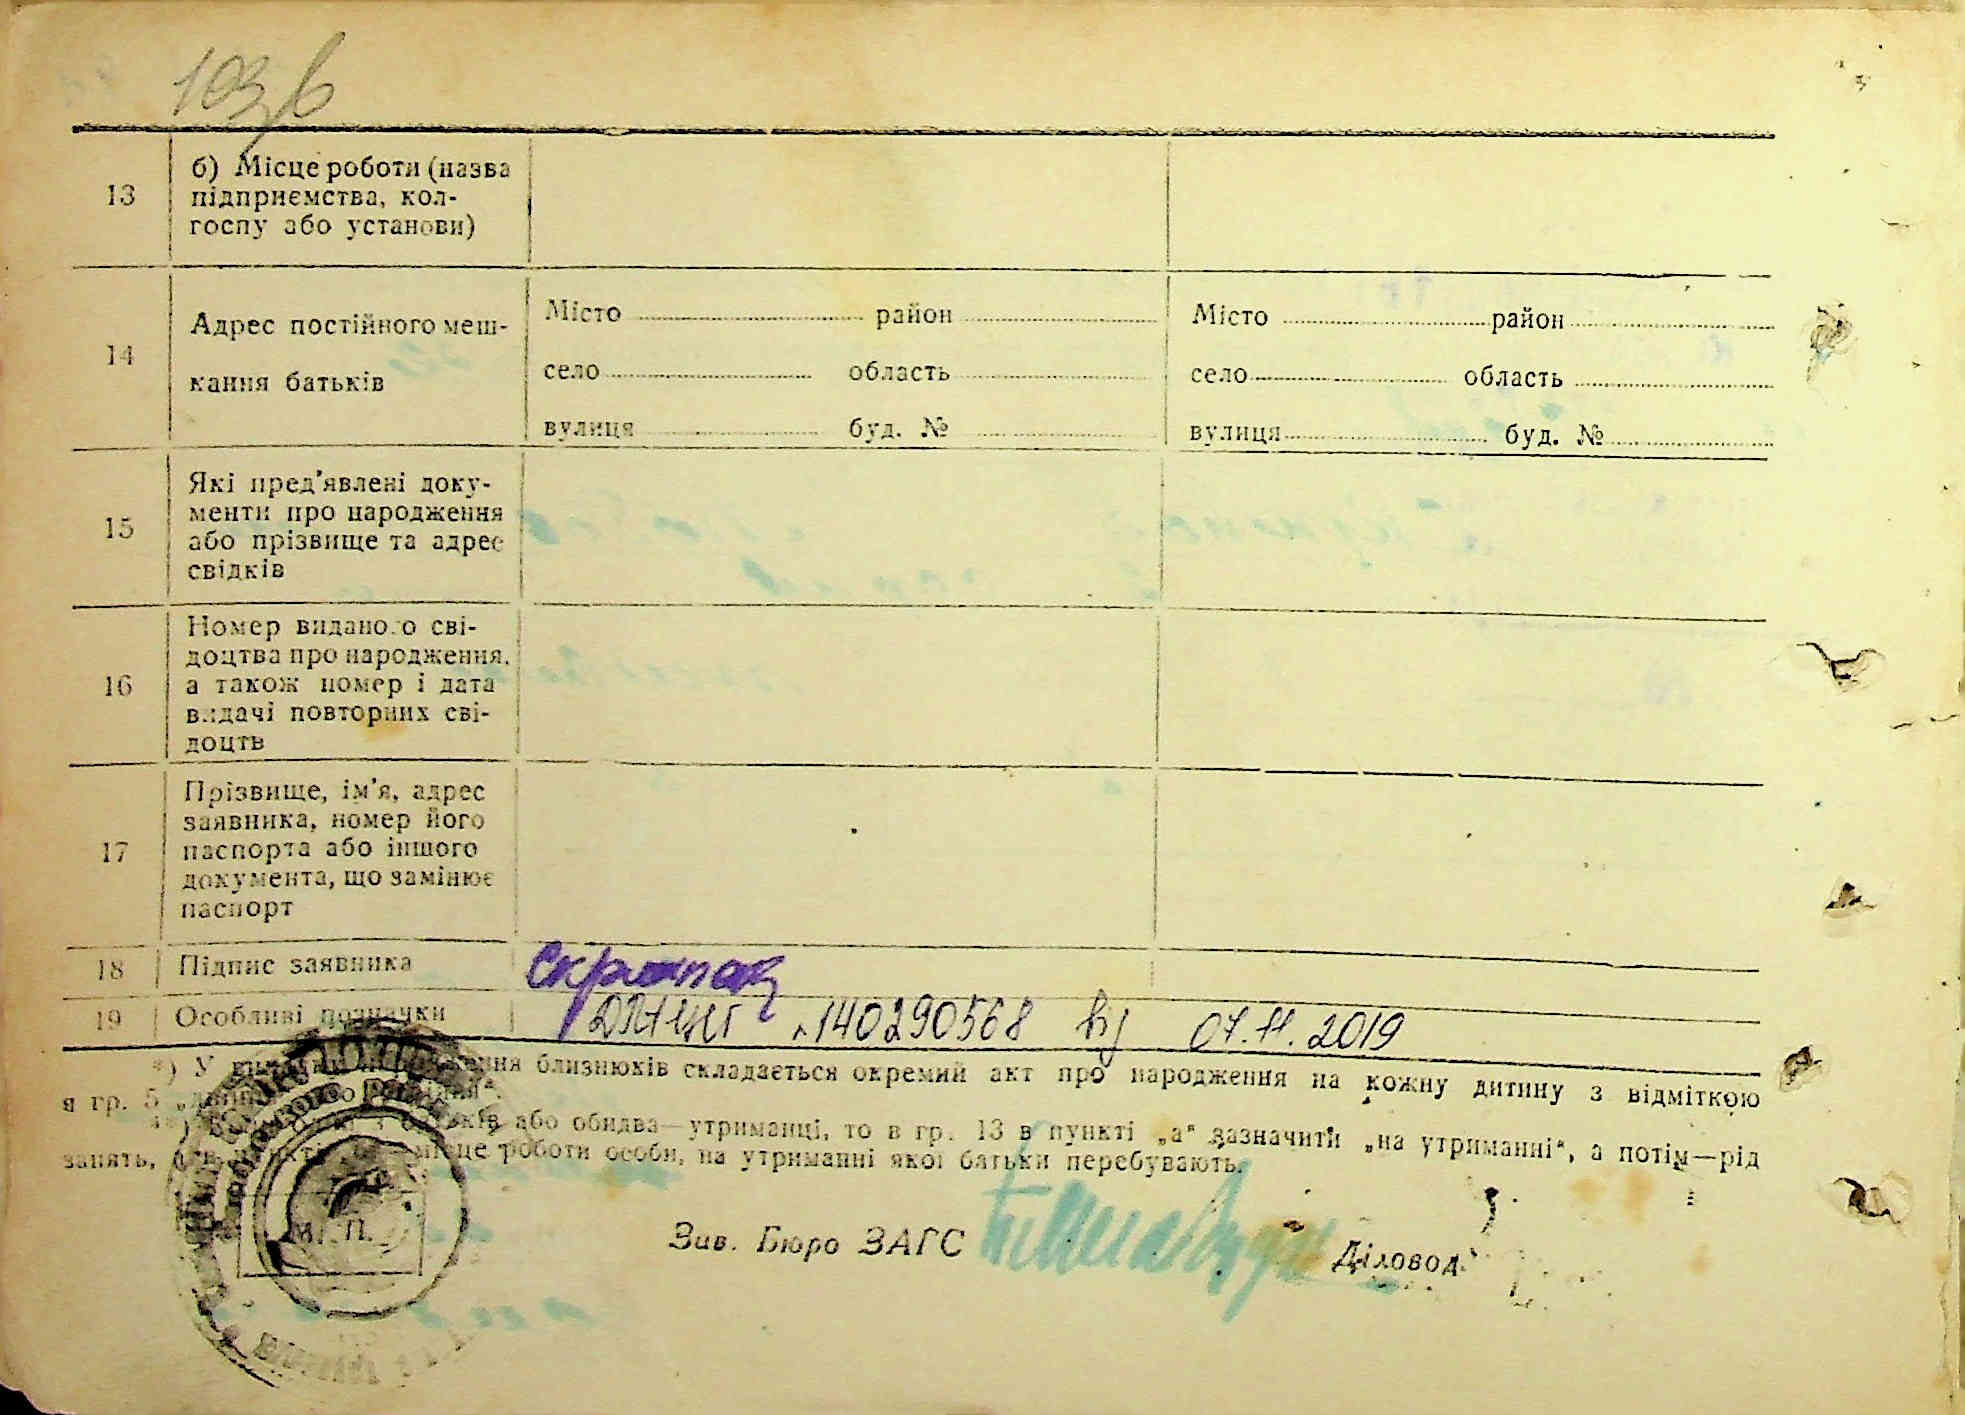 103 в
13 б) Місце роботи (назва
підприємства, кол-
госпу або установи)
14 Адрес постійного меш-
кання батьків
Місто район
село область
вулиця буд. №
Місто район
село область
вулиця буд. №
15 Які пред'явлені доку-
менти про народження
або прізвище та адрес
свідків
16 Номер виданого сві-
доцтва про народження,
а також номер і дата
видачі повторних сві-
доцтв
17 Прізвище, ім'я, адрес
заявника, номер його
паспорта або іншого
документа, що замінює
паспорт
18 Підпис заявника
19 Особливі позначки 140290568 07.11.2019
*) У народження близнюків складається окремий акт про народження на кожну дитину з відміткою
я гр. 5
або обидва—утриманці, то в гр. 13 в пункті „а" зазначити „на утриманні", а потім—рід
занять, місце роботи особи, на утриманні якої батьки перебувають.
М. П.
Зав. Бюро ЗАГС Діловод